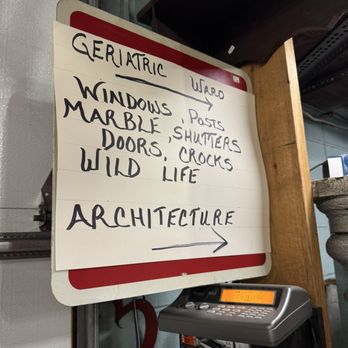 GERIATRIC WARD
WINDOWS, POSTS
MARBLE, SHUTTERS
DOORS, CROCKS
WILD LIFE
ARCHITECTURE